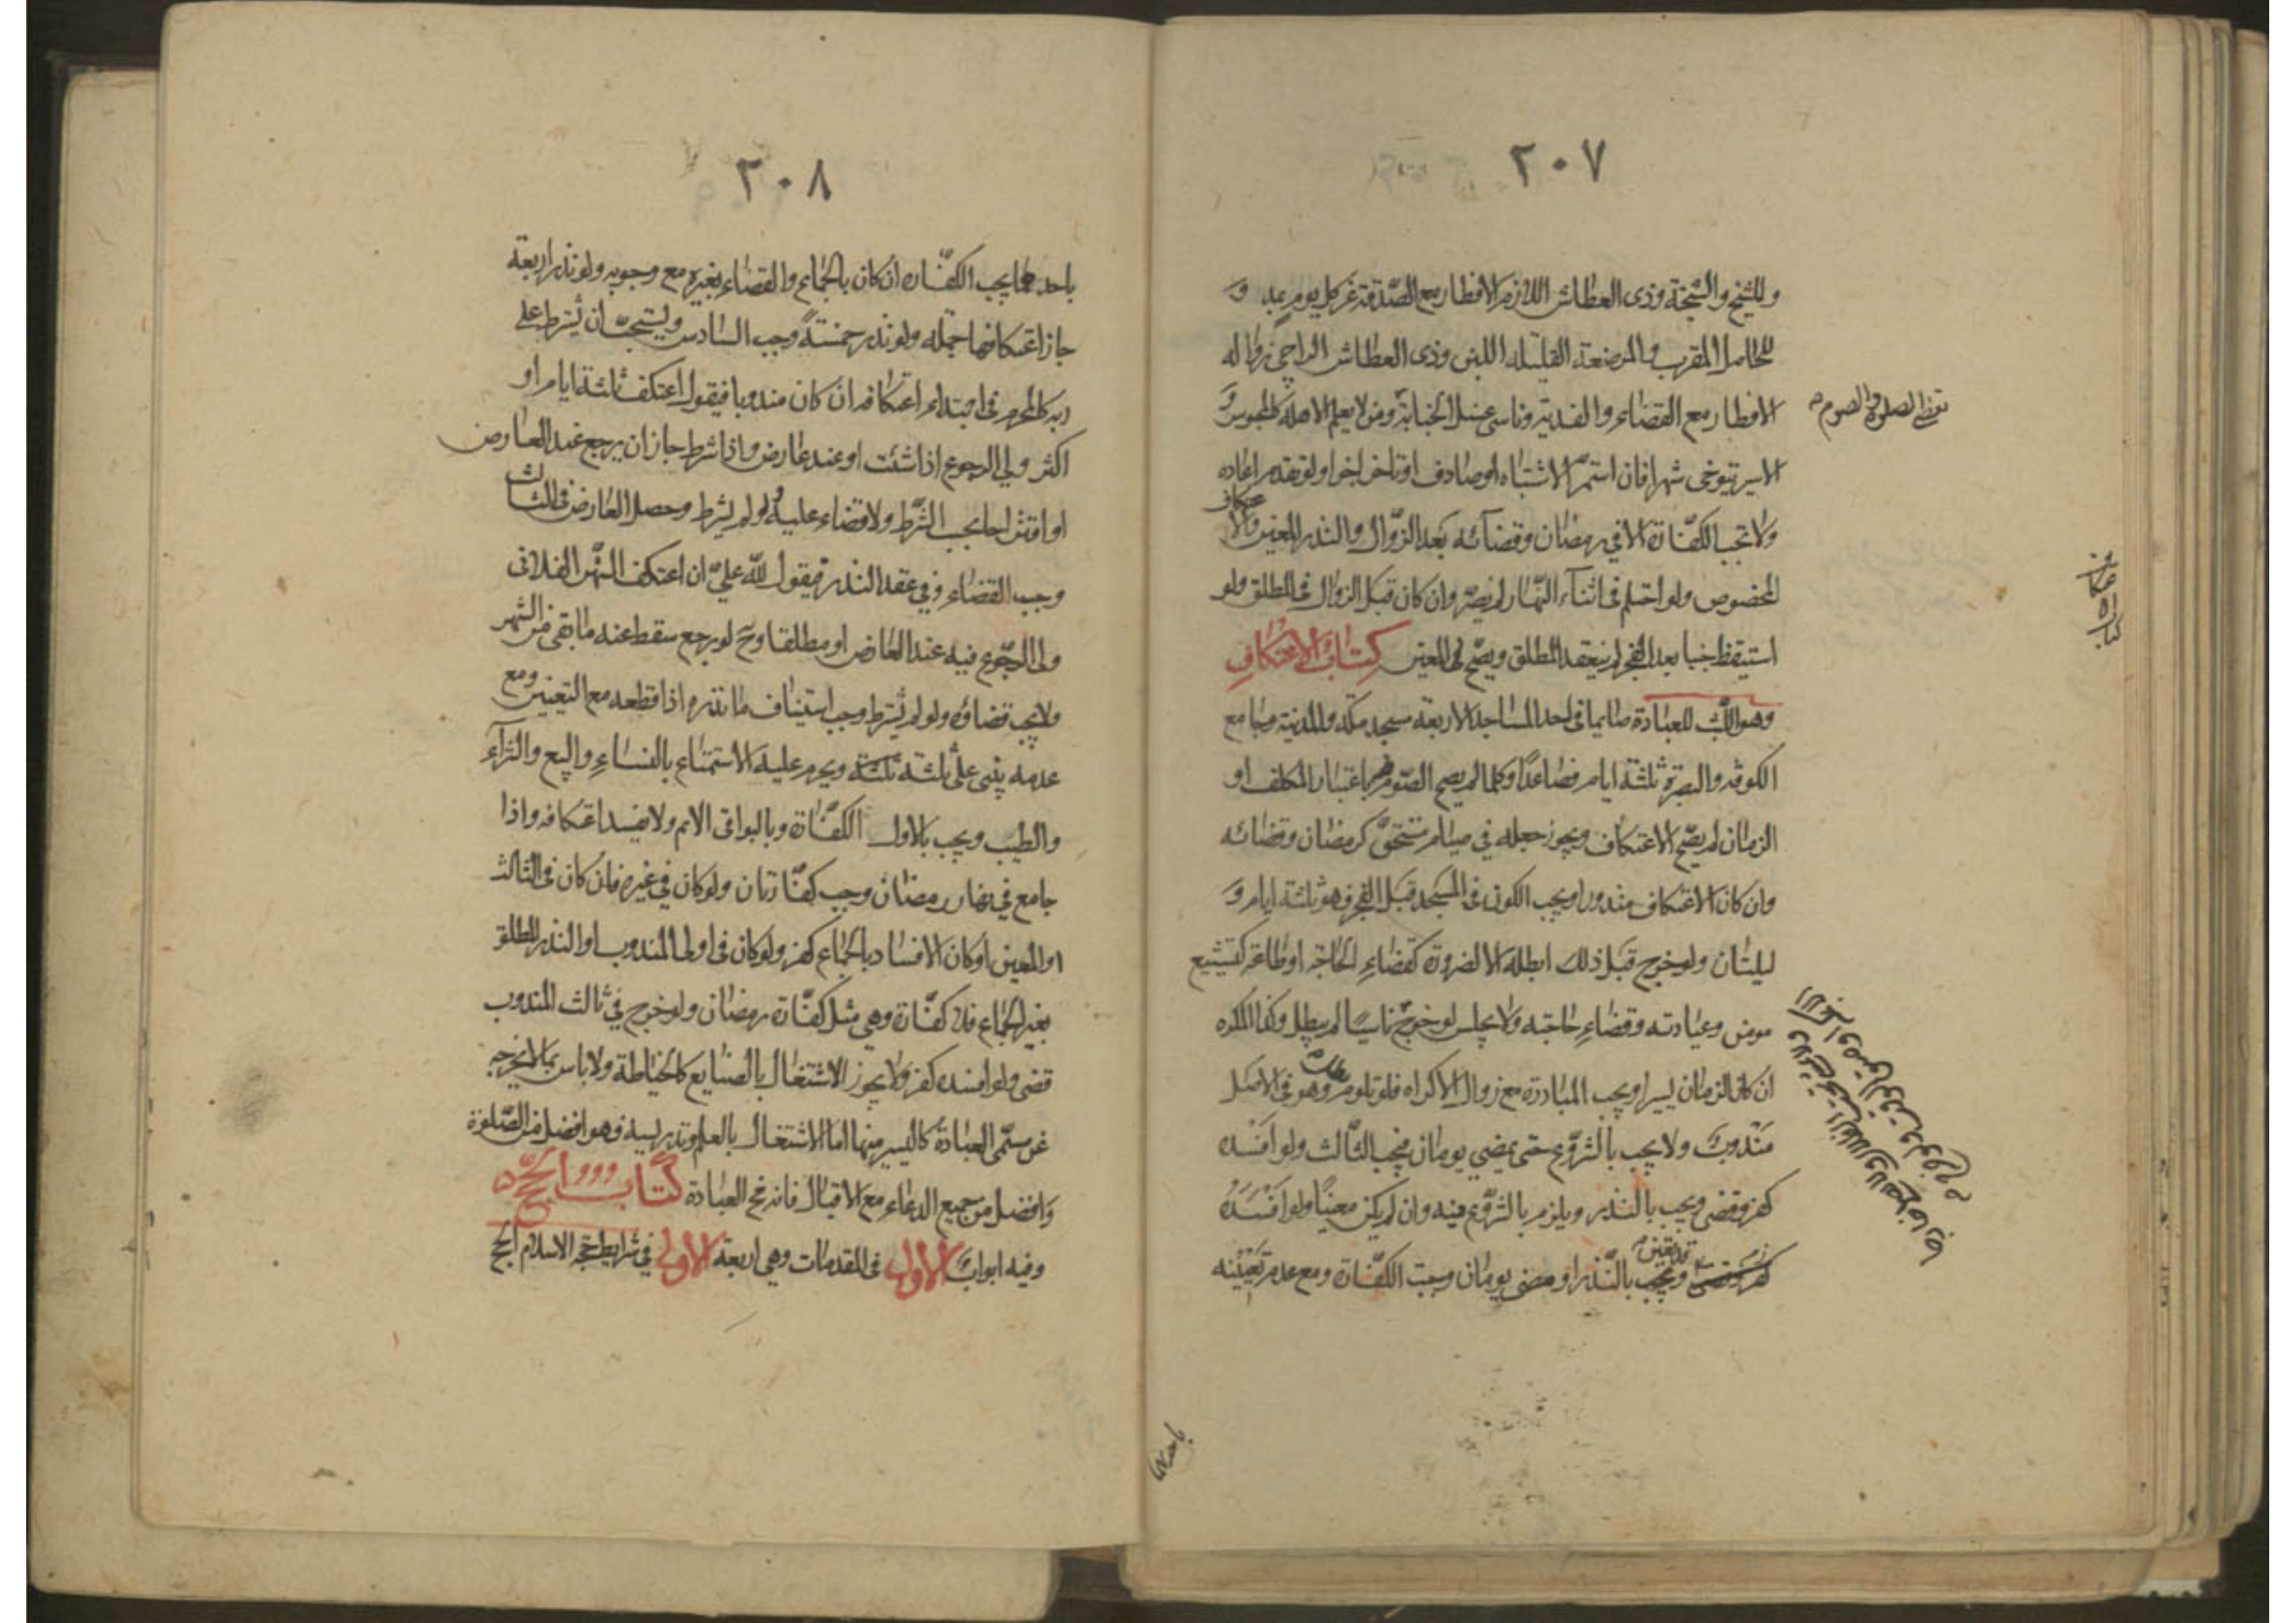 ٢٠٧
وللشيخ والشيخة وذى العطاش اللازم الافطار مع الصّدقة عن كل يوم بمد و
للحامل المقرب والمرضعة القليله اللبن وذى العطاش الراجى زواله
الافطار مع القضاء والفدية وناسى غسل الجنابة ومن لا يعلم الاهله كالمحبوس و
يقضى الصلوة والصوم
الاسير يتوخى شهرا فان استمرّ الاشتباه او صادف او تاخر اجزا ولو تقدم اعاده
ولا تجب الكفّارة الا فى رمضان وقضائه بعد الزّوال والنذر المعين والا
عتكاف
المخصوص ولو احتلم فى اثناء النّهار لم يضرّ وان كان قبل الزوال فى المطلق ولو
استيقظ جنبا بعد الفجر لم ينعقد المطلق ويصحّ فى المعين كتاب الاعتكاف
كتاب الاعتكاف
وهو اللّبث للعبادة صايما فى احد المساجد الاربعة مسجد مكة والمدينة وجامع
الكوفه والبصرة ثلثة ايام فصاعدًا وكلما لم يصح الصّوم باعتبار المكلف او
الزمان لم يصحّ الاعتكاف ويجوز جعله في صيام مستحقّ كرمضان وقضائه
وان كان الاعتكاف مندورا ويجب الكون فى المسجد قبل الفجر فهو ثلثة ايام و
ليلتان ولو خرج قبل ذلك ابطله الا لضرورة كقضاء الحاجة او طاعة كتشييع
مومن وعيادته وقضاء حاجته ولا يجلس لو خرج ناسيًا لم يبطل وكذا المكره
ان كان الزمان يسيرا ويجب المبادرة مع زوال الاكراه فلو تلوم وهو فى الاصل
بطل
مندوب ولا يجب بالشروع حتى يمضي يومان فيجب الثّالث ولو افسده
كفر وقضى ويجب بالنذر ويلزم بالشروع فيه وان لم يكن معينًا ولو افسده
كفر وقضى ويجب بالنّذر او مضى يومان وجبت الكفّارة ومع عدم تعيّنه
باحدهما
٢٠٨
باحدهما يجب الكفّاره ان كان بالجماع والقضاء بغيره مع وجوبه ولو نذر اربعة
جاز اعتكافها جملة ولو نذر خمسةً وجب السّادس ويستحبّ ان يشترط على
ربه كالمحرم فى ابتداء اعتكافه ان كان مندوبا فيقول اعتكف ثلثة ايام او
اكثر ولى الرجوع اذا شئت او عند عارض واذا شرط جاز ان يرجع عند العارض
او اقتراحا بحسب الشّرط ولا قضاء عليه ولو لم يشرط وحصل العارض فى الثالث
وجب القضاء وفي عقد النذر فيقول للّه عليّ ان اعتكف الشّهر الفلانى
ولى الرجوع فيه عند العارض او مطلقا وح لو رجع سقط عنه ما بقى من الشهر
ولا يجب قضاؤه ولو لم يشترط وجب استيناف ما نذره اذا قطعه مع التعيين ومع
عدمه يبنى على ثلثة ثلثة ويحرم عليه الاستمتاع بالنساء والبيع والشراء
والطيب ويجب بالاول الكفّارة وبالبواقى الاثم ولا يفسد اعتكافه واذا
جامع في نهار رمضان وجب كفّارتان ولو كان في غيره فان كان فى الثالث
او المعين او كان الافساد بالجماع كفر ولو كان فى اولى المندوب او النذر المطلق
بغير الجماع فلا كفّارة وهى مثل كفّارة رمضان ولو خرج في ثالث المندوب
قضى ولو افسده كفر ولا يجوز الاشتغال بالصنايع كالخياطة ولا باس بما لا يخرجه
عن مسمّى العبادة كاليسير منها اما الاشتغال بالعلم وتدريسه فهو افضل من الصّلوة
وافضل من جميع الدعاء مع الاقبال فانه مخ العبادة كتاب الحجّ
وفيه ابواب الاول فى المقدمات وهى اربعة الاولى في شرايط حجة الاسلام الحج